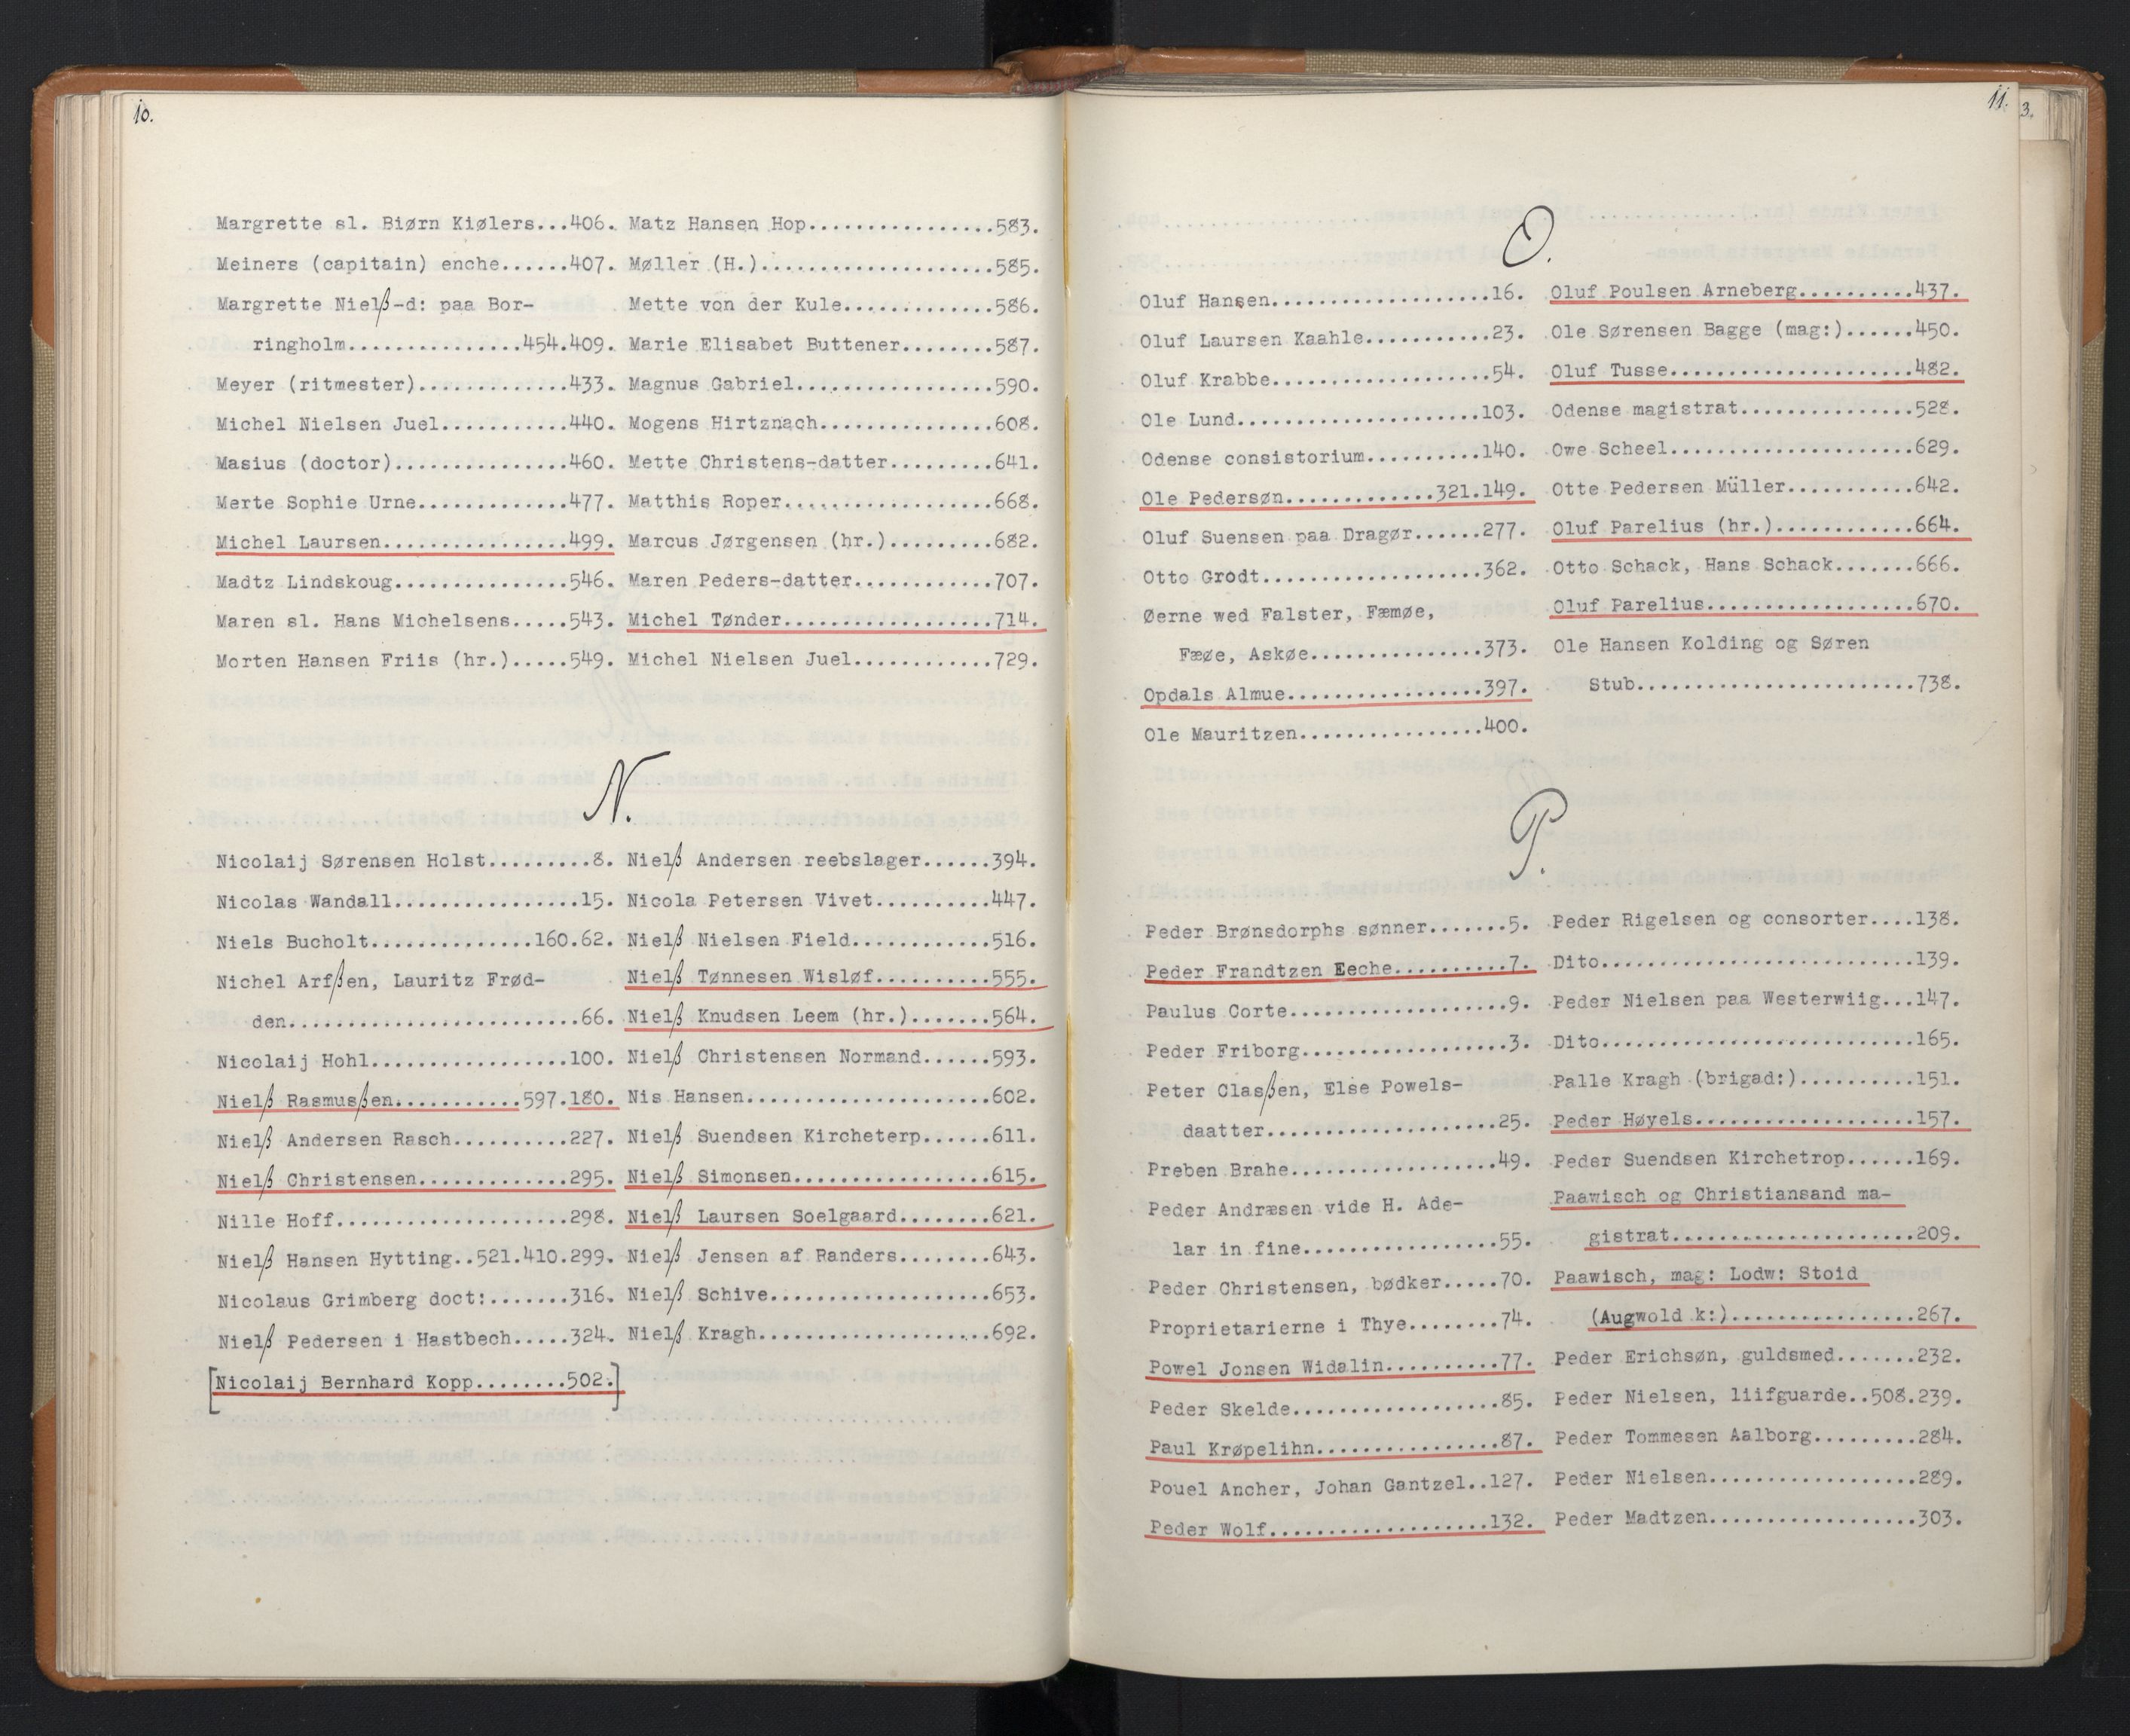 10.
Margrette sl. Biørn Kiølers...406.
Meiners (capitain) enche......407.
Margrette Nielß-d: paa Bor-
ringholm...............454.409.
Meyer (ritmester).............433.
Michel Nielsen Juel...........440.
Masius (doctor)...............460.
Merte Sophie Urne.............477.
Michel Laursen................499.
Madtz Lindskoug...............546.
Maren sl. Hans Michelsens.....543.
Morten Hansen Friis (hr.).....549.
Matz Hansen Hop................583.
Møller (H.)....................585.
Mette von der Kule.............586.
Marie Elisabet Buttener........587.
Magnus Gabriel.................590.
Mogens Hirtznach...............608.
Mette Christens-datter.........641.
Matthis Roper..................668.
Marcus Jørgensen (hr.).........682.
Maren Peders-datter............707.
Michel Tønder..................714.
Michel Nielsen Juel............729.
N.
Nicolaij Sørensen Holst.........8.
Nicolas Wandall................15.
Niels Bucholt..............160.62.
Nichel Arfßen, Lauritz Frød-
den.........................66.
Nicolaij Hohl.................100.
Nielß Rasmusßen...........597.180.
Nielß Andersen Rasch..........227.
Nielß Christensen.............295.
Nille Hoff....................298.
Nielß Hansen Hytting..521.410.299.
Nicolaus Grimberg doct:.......316.
Nielß Pedersen i Hastbech.....324.
[Nicolaij Bernhard Kopp........502.]
Nielß Andersen reebslager......394.
Nicola Petersen Vivet..........447.
Nielß Nielsen Field............516.
Nielß Tønnesen Wisløf..........555.
Nielß Knudsen Leem (hr.).......564.
Nielß Christensen Normand......593.
Nis Hansen.....................602.
Nielß Suendsen Kircheterp......611.
Nielß Simonsen.................615.
Nielß Laursen Soelgaard........621.
Nielß Jensen af Randers........643.
Nielß Schive...................653.
Nielß Kragh....................692.
11.
3.
O.
Oluf Hansen...................16.
Oluf Laursen Kaahle...........23.
Oluf Krabbe...................54.
Ole Lund.....................103.
Odense consistorium..........140.
Ole Pedersøn.............321.149.
Oluf Suensen paa Dragør......277.
Otto Grodt...................362.
Øerne wed Falster, Fæmøe,
Fæøe, Askøe...............373.
Opdals Almue.................397.
Ole Mauritzen................400.
Oluf Poulsen Arneberg..........437.
Ole Sørensen Bagge (mag:)......450.
Oluf Tusse.....................482.
Odense magistrat...............528.
Owe Scheel.....................629.
Otte Pedersen Müller...........642.
Oluf Parelius (hr.)............664.
Otto Schack, Hans Schack.......666.
Oluf Parelius..................670.
Ole Hansen Kolding og Søren
Stub........................738.
P.
Peder Brønsdorphs sønner.......5.
Peder Frandtzen Eeche..........7.
Paulus Corte...................9.
Peder Friborg..................3.
Peter Clasßen, Else Powels-
daatter....................25.
Preben Brahe..................49.
Peder Andræsen vide H. Ade-
lar in fine.................55.
Peder Christensen, bødker.....70.
Proprietarierne i Thye........74.
Powel Jonsen Widalin..........77.
Peder Skelde..................85.
Paul Krøpelihn................87.
Pouel Ancher, Johan Gantzel..127.
Peder Wolf...................132.
Peder Rigelsen og consorter....138.
Dito...........................139.
Peder Nielsen paa Westerwiig...147.
Dito...........................165.
Palle Kragh (brigad:)..........151.
Peder Høyels...................157.
Peder Suendsen Kirchetrop......169.
Paawisch og Christiansand ma-
gistrat.....................209.
Paawisch, mag: Lodw: Stoid
(Augwold k:)................267.
Peder Erichsøn, guldsmed.......232.
Peder Nielsen, liifguarde..508.239.
Peder Tommesen Aalborg.........284.
Peder Nielsen..................289.
Peder Madtzen..................303.